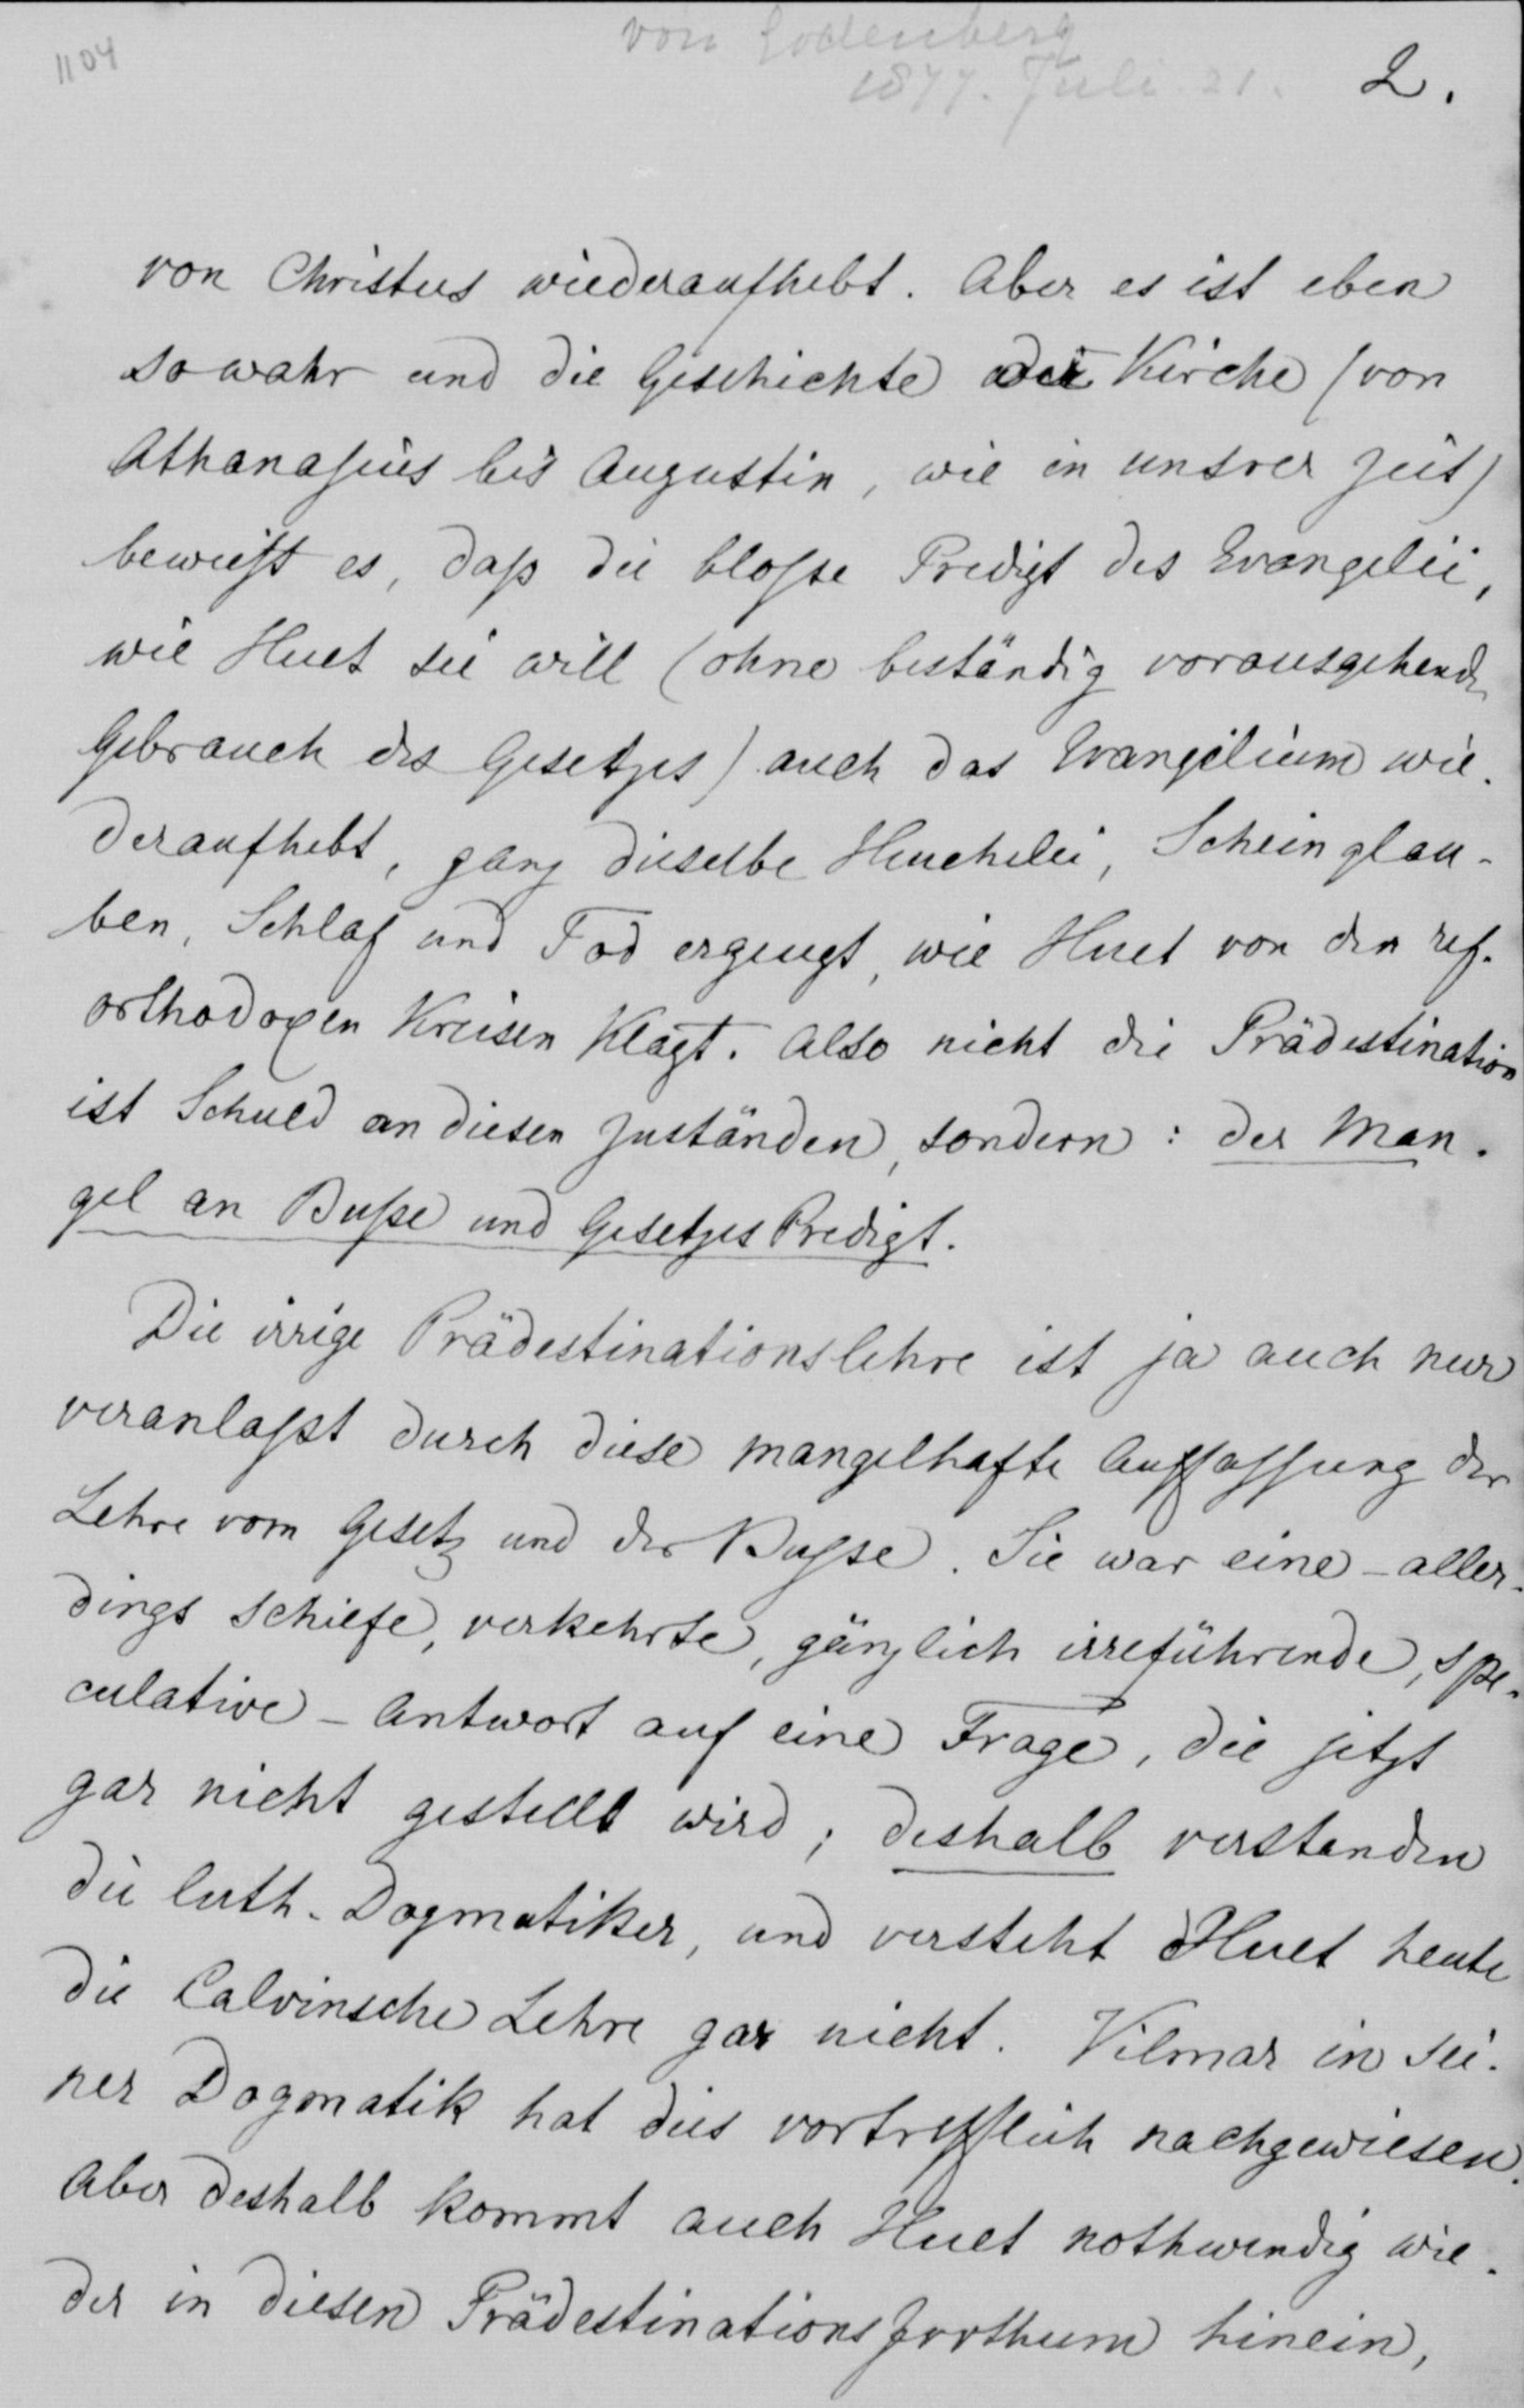 1104
von Lodenberg
1877. Juli 21.
2.
von Christus wiederaufhebt. Aber es ist eben
so wahr und die Geschichte der Kirche (von
Athanasius bis Augustin, wie in unsrer Zeit)
beweist es, daß die bloße Predigt des Evangelii,
wie Huet sie will (ohne beständig vorausgehenden
Gebrauch des Gesetzes) auch das Evangelium wie-
deraufhebt, ganz dieselbe Heuchelei, Scheinglau-
ben, Schlaf und Tod erzeugt, wie Huet von den ref.
orthodoxen Kreisen klagt. Also nicht die Prädestination
ist Schuld an diesen Zuständen, sondern: der Man-
gel an Buße und Gesetzes Predigt.
Die irrige Prädestinationslehre ist ja auch nur
veranlaßt durch diese mangelhafte Auffassung der
Lehre vom Gesetz und der Buße. Sie war eine - aller-
dings schiefe, verkehrte, gänzlich irreführende, spe-
culative - Antwort auf eine Frage, die jetzt
gar nicht gestellt wird; deshalb verstanden
die luth. Dogmatiker, und versteht Huet heute
die Calvinsche Lehre gar nicht. Vilmar in sei-
ner Dogmatik hat dies vortrefflich nachgewiesen.
Aber deshalb kommt auch Huet nothwendig wie-
der in diesen Prädestinations Irrthum hinein,